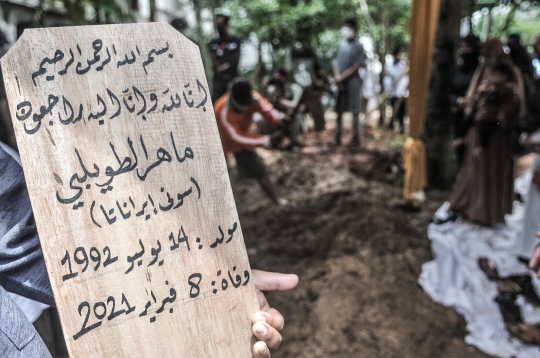 بسم الله الرحمن الرحيم
إنا لله وإنا إليه راجعون
ماهر الطويلبي
(سوني إيراناتا)
مولد : 14 يوليو 1992
وفاة : 8 فبراير 2021